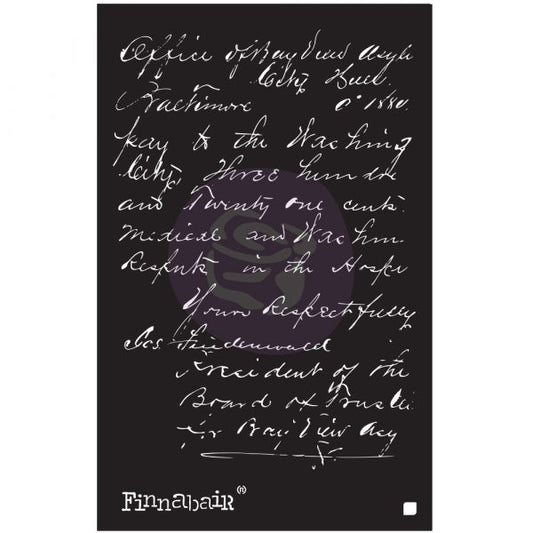 Office of Bay View Asyl
City Hall
Baltimore 1880.
pay to the Washing
City, Three hundre
and Twenty one cents.
Medical and Washin
in the Hospi
Yours Respectfully
Jos. Friedenwald
President of the
Board of Trustee
for Bay View Asy
Finnabair (R)